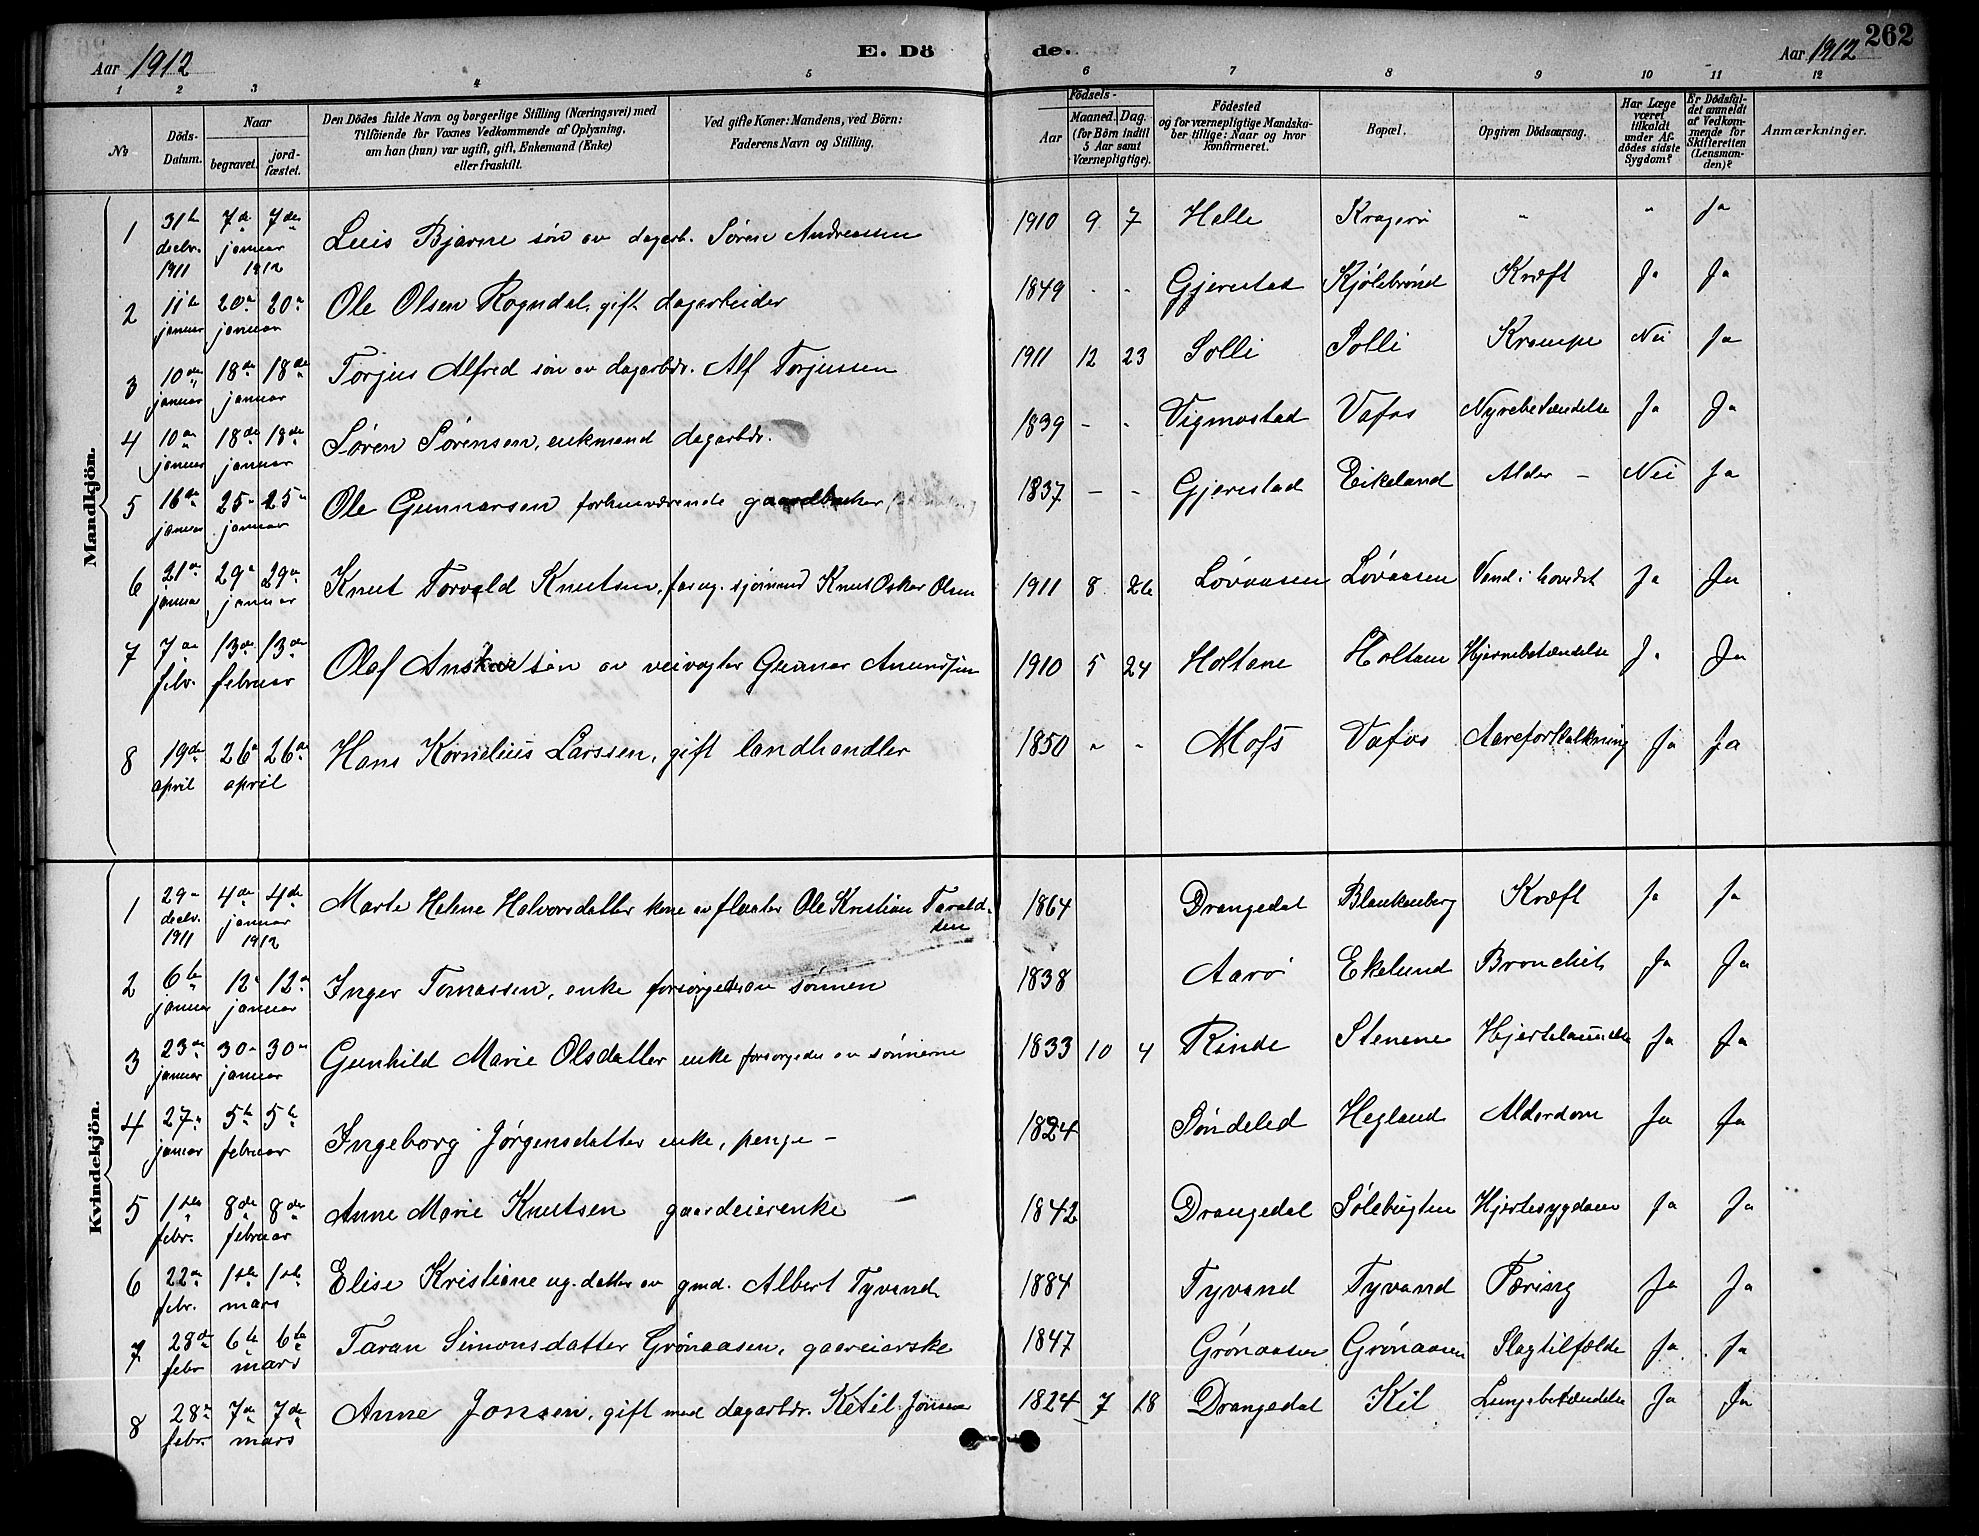 262
Aar 1912 E. Dö de. Aar 1912
1 2 3 4 5 6 7 8 9 10 11 12
No
Döds-Datum.
Naar begravet. jordfæstet.
Den Dödes fulde Navn og borgerlige Stilling (Næringsvei) med
Tilföiende for Voxnes Vedkommende af Oplysning,
om han (hun) var ugift, gift, Enkemand (Enke)
eller fraskilt.
Ved gifte Koner: Mandens, ved Börn:
Faderens Navn og Stilling.
Födsels-
Aar Maaned. Dag.
(for Börn indtil
5 Aar samt
Værnepligtige).
Födested
og for værnepligtige Mandskaber tillige: Naar og hvor
konfirmeret.
Bopæl.
Opgiven Dödsaarsag.
Har Læge været tilkaldt under Afdödes sidste Sygdom?
Er Dödsfaldet anmeldt af Vedkommende for Skifteretten (Lensmanden)?
Anmærkninger.
Mandkjön.
1 31te decbr. 1911 7de 7de januar 1912 Luis Bjarne søn av dagarb. Søren Andreassen 1910 9 7 Helle Kragerø " " Ja
2 11te januar 20de 20de januar Ole Olsen Rogndal, gift dagarbeider 1849 - - Gjerestad Kjølebrønd Kræft Ja Ja
3 10de januar 18de 18de januar Torjus Alfred søn av dagarbdr. Alf Torjussen 1911 12 23 Solli Solli Krampe Nei Ja
4 10de januar 18de 18de januar Søren Sørensen, enkmand dagarbdr. 1839 - - Vigmostad Vafos Nyrebetændelse Ja Ja
5 16de januar 25de 25de januar Ole Gunnarsen forhenværende gaardbruker 1837 - - Gjerestad Eikeland Alder - Nei Ja
6 21de januar 29de 29de januar Knut Torvald Knutsen, far ug. sjømand Knut Oskar Olsen 1911 8 26 Løvaasen Løvaasen Vand i hovedet Ja Ja
7 7de febr. 13de 13de februar Olaf Anskar søn av veivogter Gunnar Amundsen 1910 5 24 Holtane Holtane Hjernebetændelse Ja Ja
8 19de april 26de 26de april Hans Kornelius Larssen, gift landhandler 1850 - - Moss Vafos Aareforkalkning Ja Ja
Kvindekjön.
1 29de decbr. 1911 4de 4de januar 1912 Marte Helene Halvorsdatter kone av fløater Ole Kristian Taraldsen 1864 Drangedal Blankenberg Kræft Ja Ja
2 6te januar 12te 12te januar Inger Tomassen, enke forsørgedes av sønnen 1838 Aarø Ekelund Bronchit Ja Ja
3 23de januar 30de 30de januar Gunhild Marie Olsdatter enke forsørgedes av sønnerne 1833 10 4 Rinde Stenene Hjertelammelse Ja Ja
4 27de januar 5te 5te februar Ingeborg Jørgensdatter enke, penge - 1824 Søndeled Hegland Alderdom Ja Ja
5 1ste febr. 8de 8de februar Anne Marie Knutsen gaardeierenke - 1842 Drangedal Sølebugten Hjertesygdom Ja Ja
6 22de febr. 1ste 1ste mars Elise Kristiane ug. datter av gmd. Albert Tyvand 1884 Tyvand Tyvand Tæring Ja Ja
7 28de febr 6te 6te mars Taran Simonsdatter Grønaasen, gaareierske 1847 Grønaasen Grønaasen Slagtilfælde Ja Ja
8 28de febr. 7de 7de mars Anne Jonsen, gift med dagarbdr. Ketil Jonsen 1824 7 18 Drangedal Kil Lungebetændelse Ja Ja